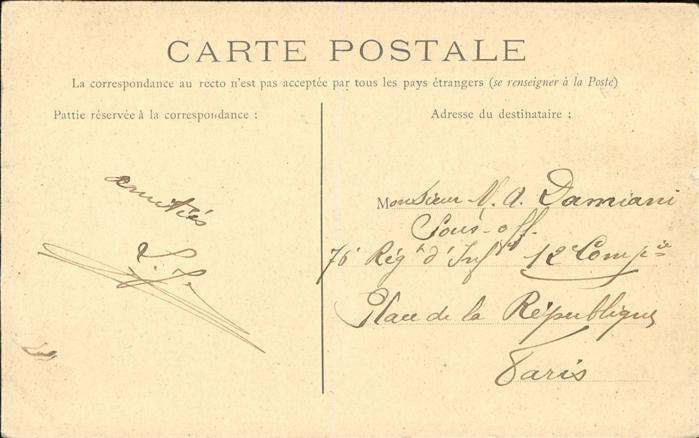 CARTE POSTALE
La correspondance au recto n'est pas acceptée par tous les pays étrangers (se renseigner à la Poste)
Pattie réservée à la correspondance :
Adresse du destinataire :
amitiés
Monsieur A. Damiani
Sous-off.
76 Régt d'Inf 12e Compie
Place de la République
Paris